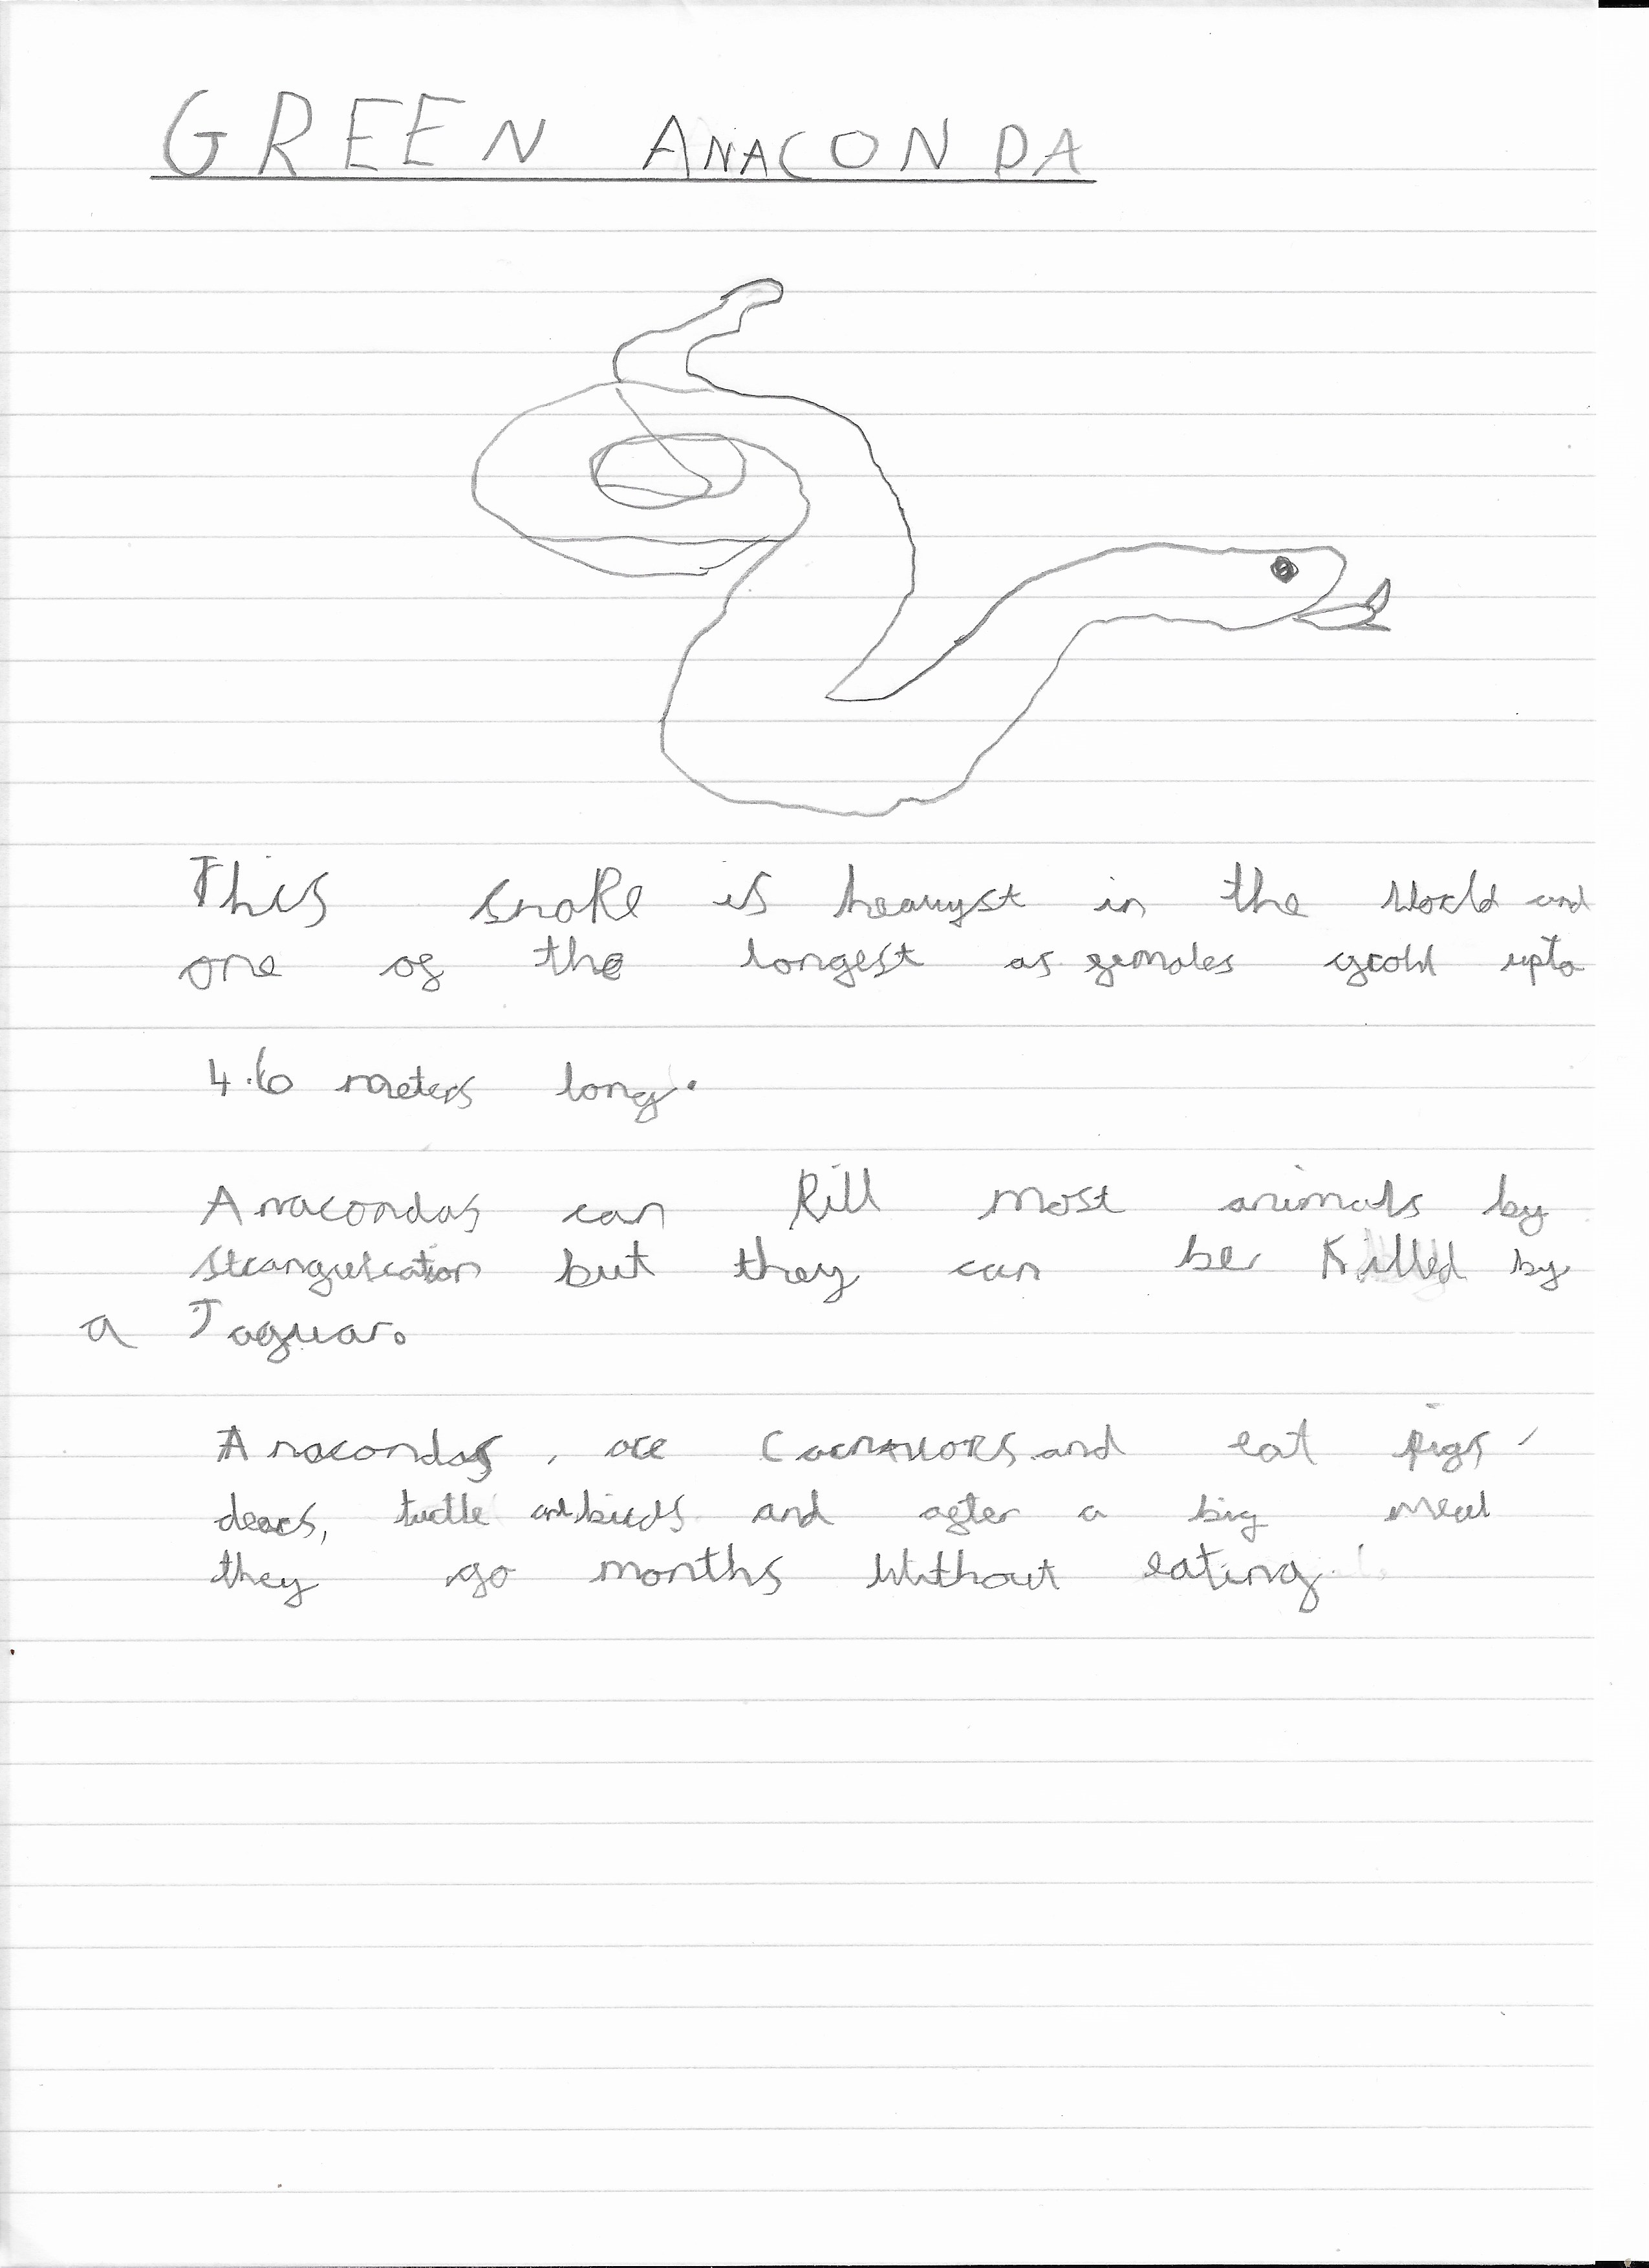 GREEN ANACONDA
This snake is heavyst in the world and
one of the longest as females grow upto
4.6 meters long.
Anacondas can kill most animals by
strangulation but they can be killed by
a Jaguar.
Anacondas, are carnivors and eat pigs,
deers, turtle and birds and after a big meal
they go months without eating.